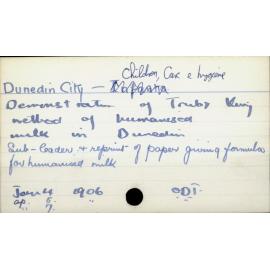 Children, Care & hygiene
Dunedin City —
Demonstration of Truby King
method of humanised
milk in Dunedin
Sub-leader & reprint of paper giving formulas
for humanised milk
Jan 4 1906 ODT.
ap. 5
7.